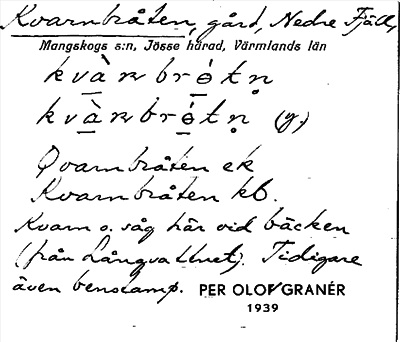 Kvarnbråten, gård, Nedre Fjäll,
Mangskogs s:n, Jösse härad, Värmlands län
kvàrnbrǿtn̥
kvàrnbrǿtn̥ (y.)
Qvarnbråten ek
Kvarnbråten kb.
Kvarn o. såg här vid bäcken
(från Långvattnet). Tidigare
även benstamp. PER OLOF GRANÉR
1939